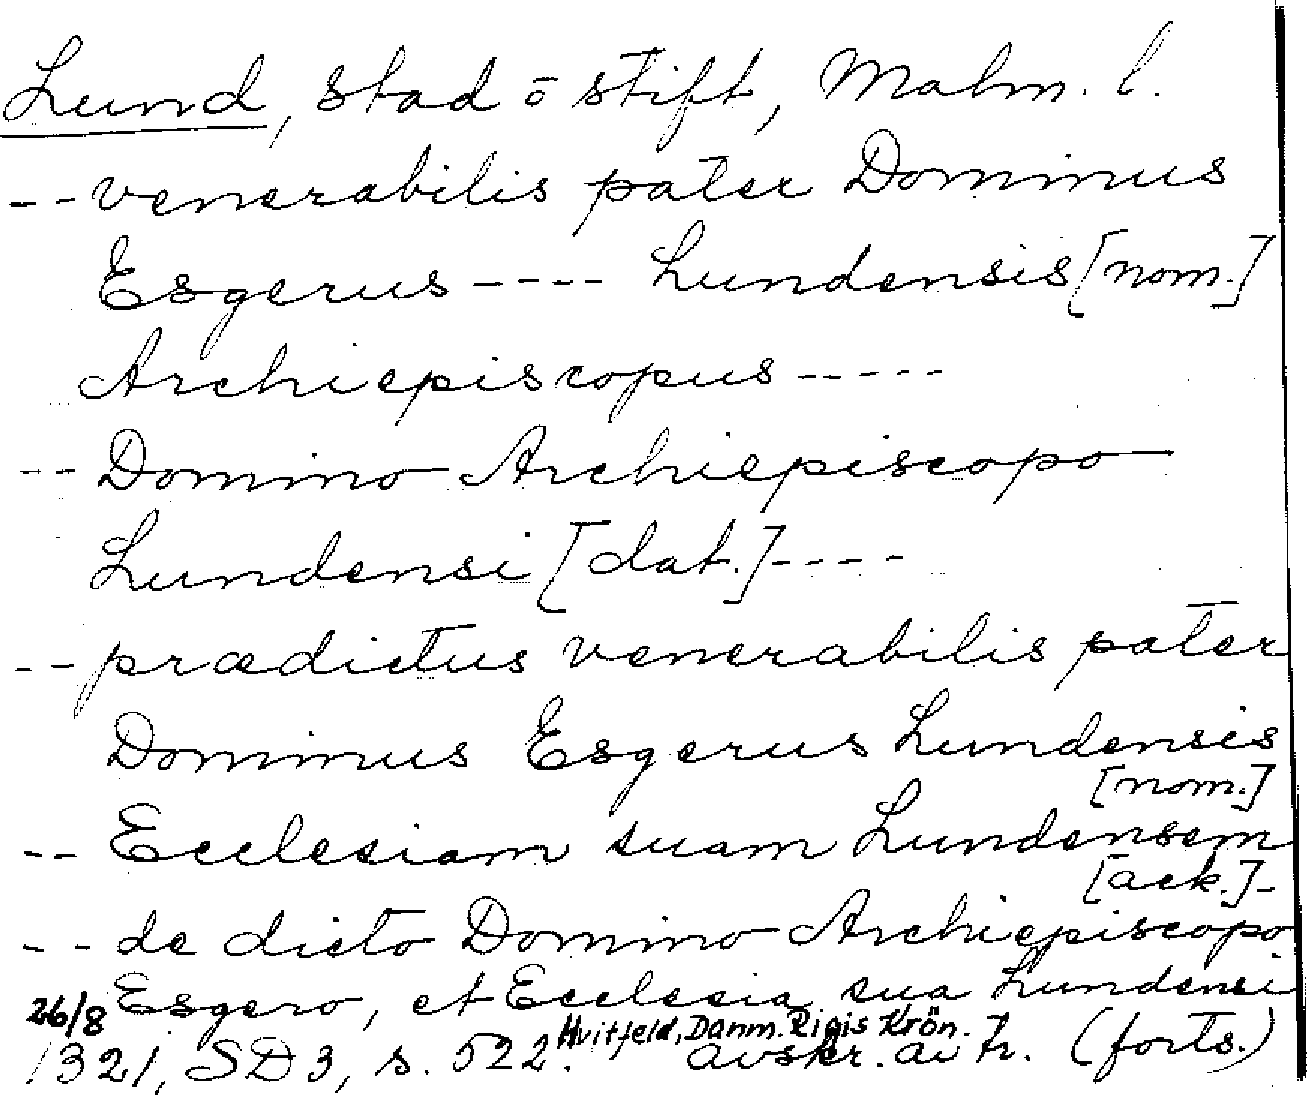 Lund, stad o stift, Malm. l.
-- venerabilis pater Dominus
Esgerus ---- Lundensis [nom.]
Archiepiscopus -----
-- Domino Archiepiscopo
Lundensi [dat.] ----
-- prædictus venerabilis pater
Dominus Esgerus Lundensis
[nom.]
-- Ecclesiam suam Lundensem
[ack.]-
-- de dicto Domino Archiepiscopo
Esgero, et Ecclesia sua Lundensi
26/8
Hvitfeld, Danm. Rigis Krön.
1321, SD 3, s. 522. avskr. av tr. (forts.)